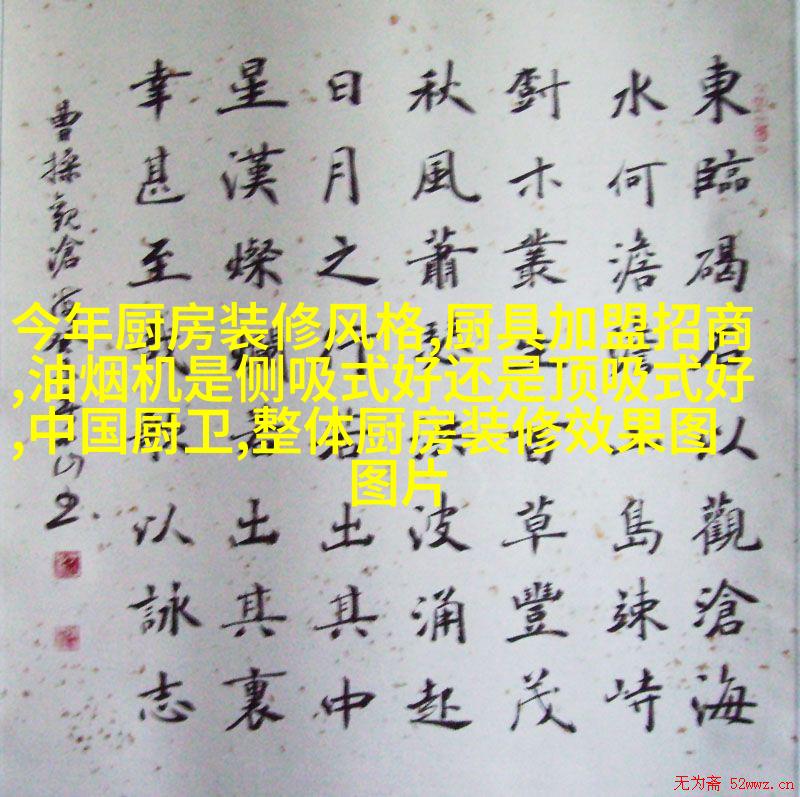 今年厨房装修风格,厨具加盟招商
,油烟机是侧吸式好还是顶吸式好
,中国厨卫,整体厨房装修效果图
图片
東臨碣石以觀滄海
水何澹澹島竦峙
樹木叢生百草豐茂
秋風蕭瑟洪波涌起
日月之行若出其中
星漢燦爛若出其裏
幸甚至哉歌以詠志
曹操觀滄海
无为斋 52wwz.cn